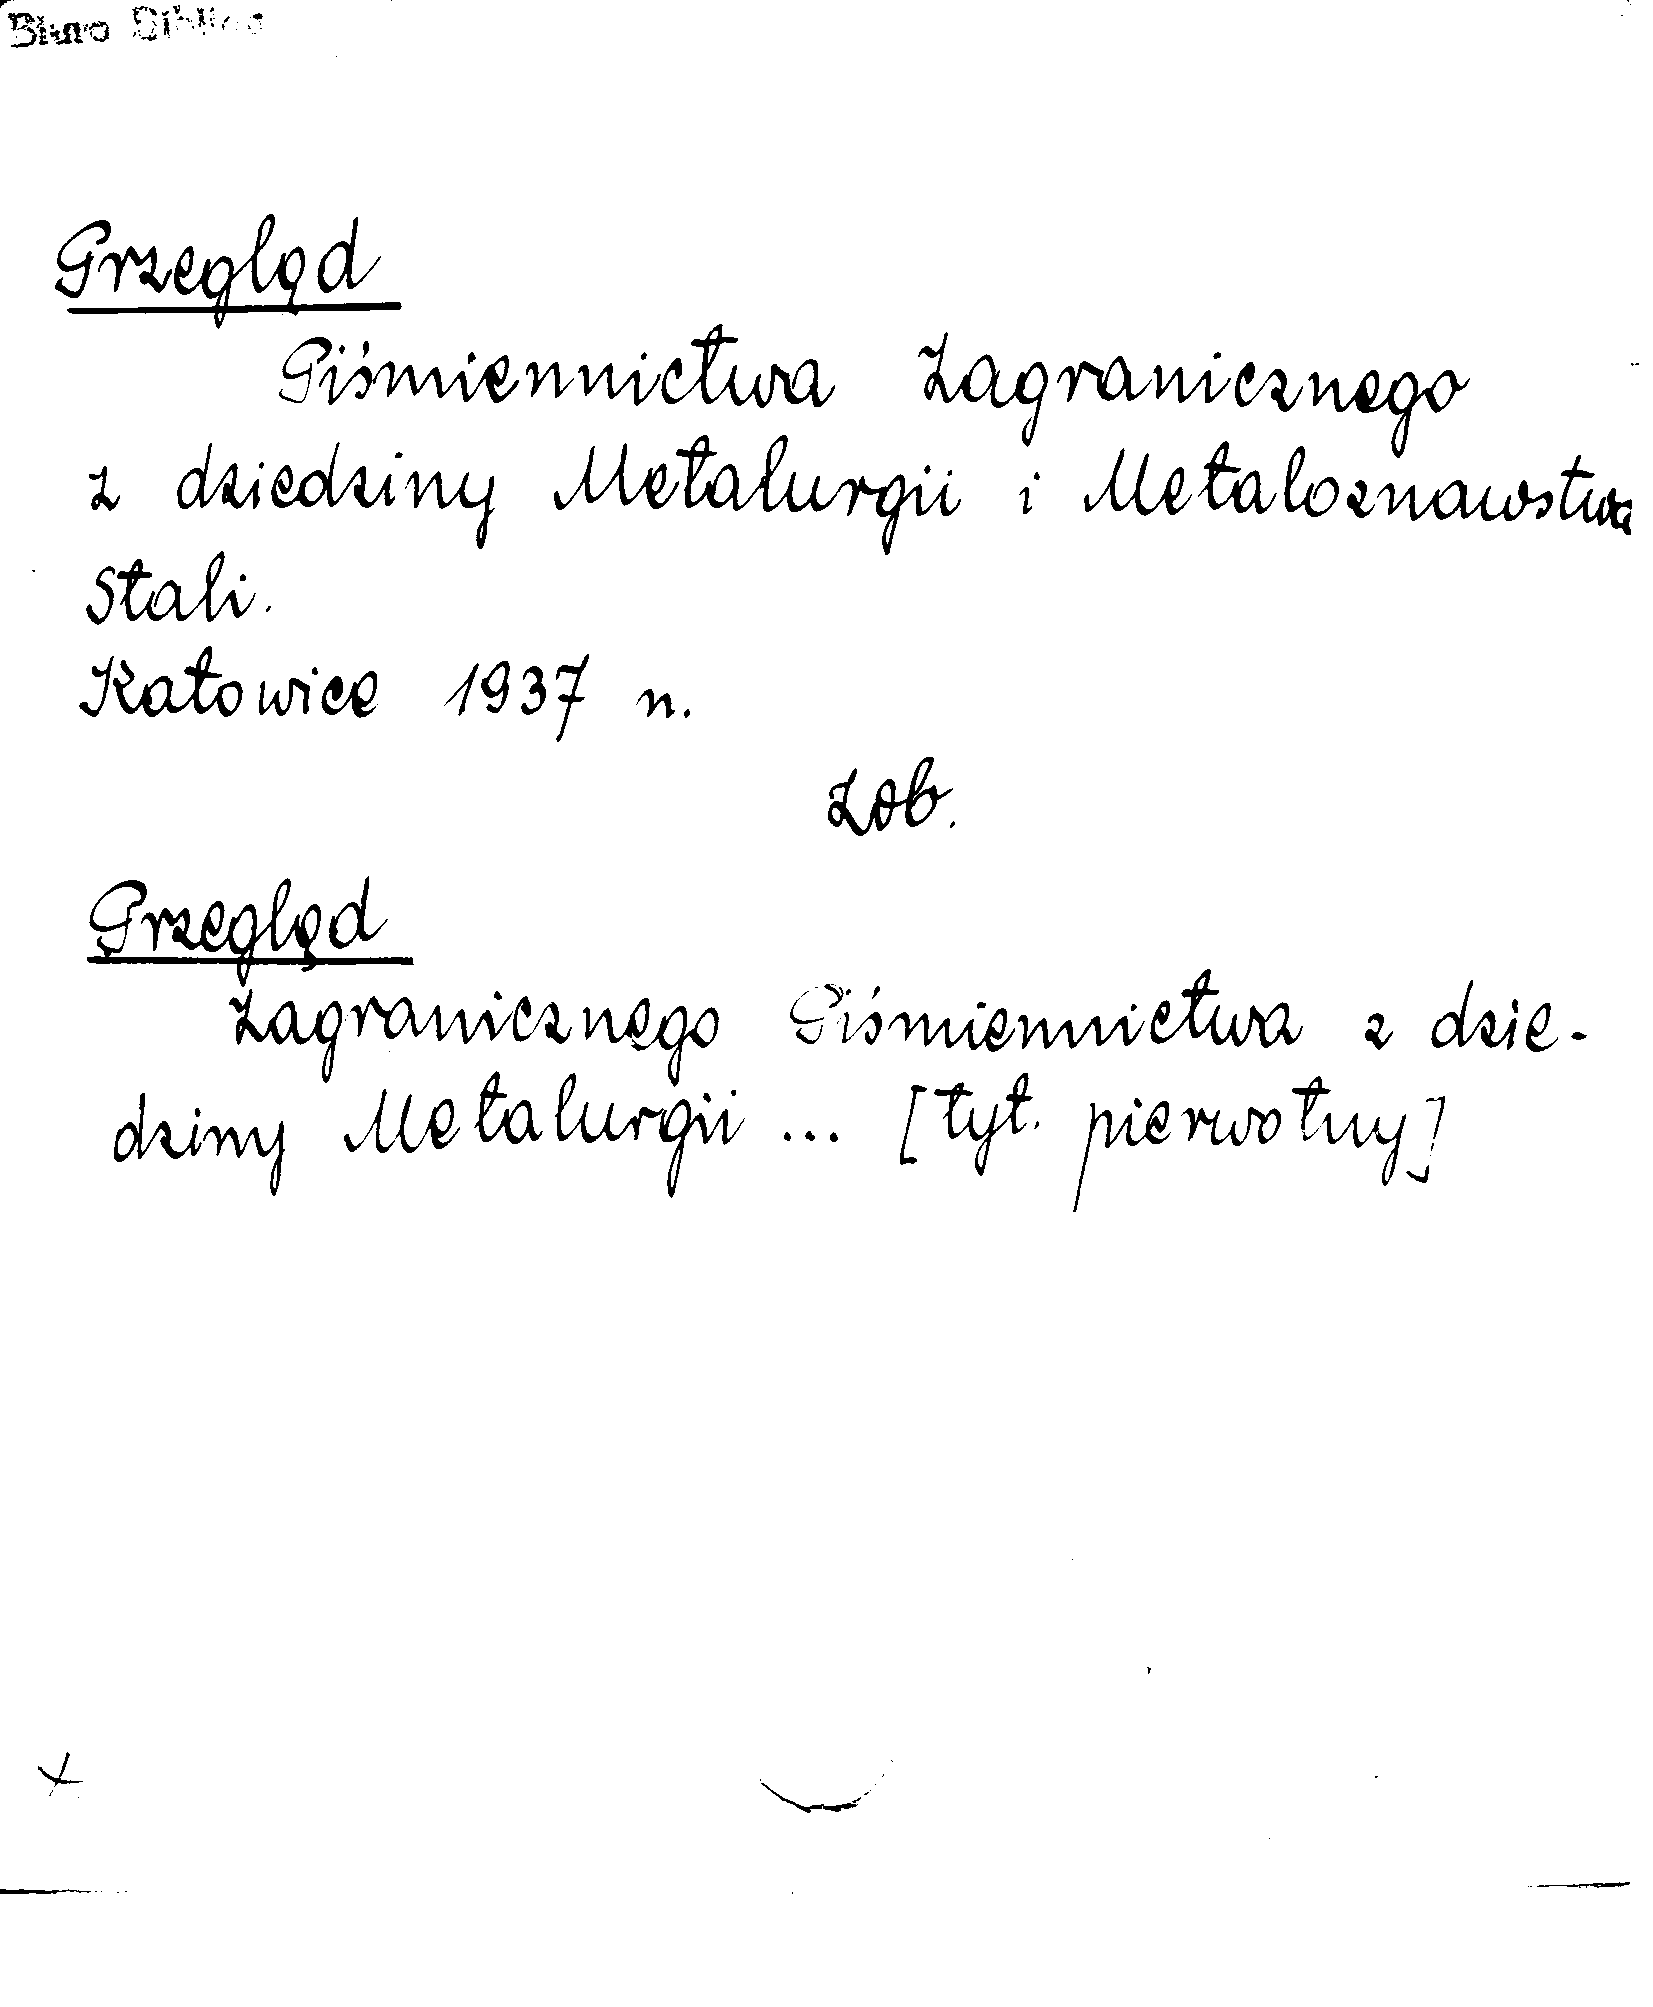 Biuro
Przegląd
Piśmiennictwa Zagranicznego
z dziedziny Metalurgii i Metaloznawstwa
Stali.
Katowice 1937 n.
Zob.
Przegląd
Zagranicznego Piśmiennictwa z dzie-
dziny Metalurgii ... [tyt. pierwotny]